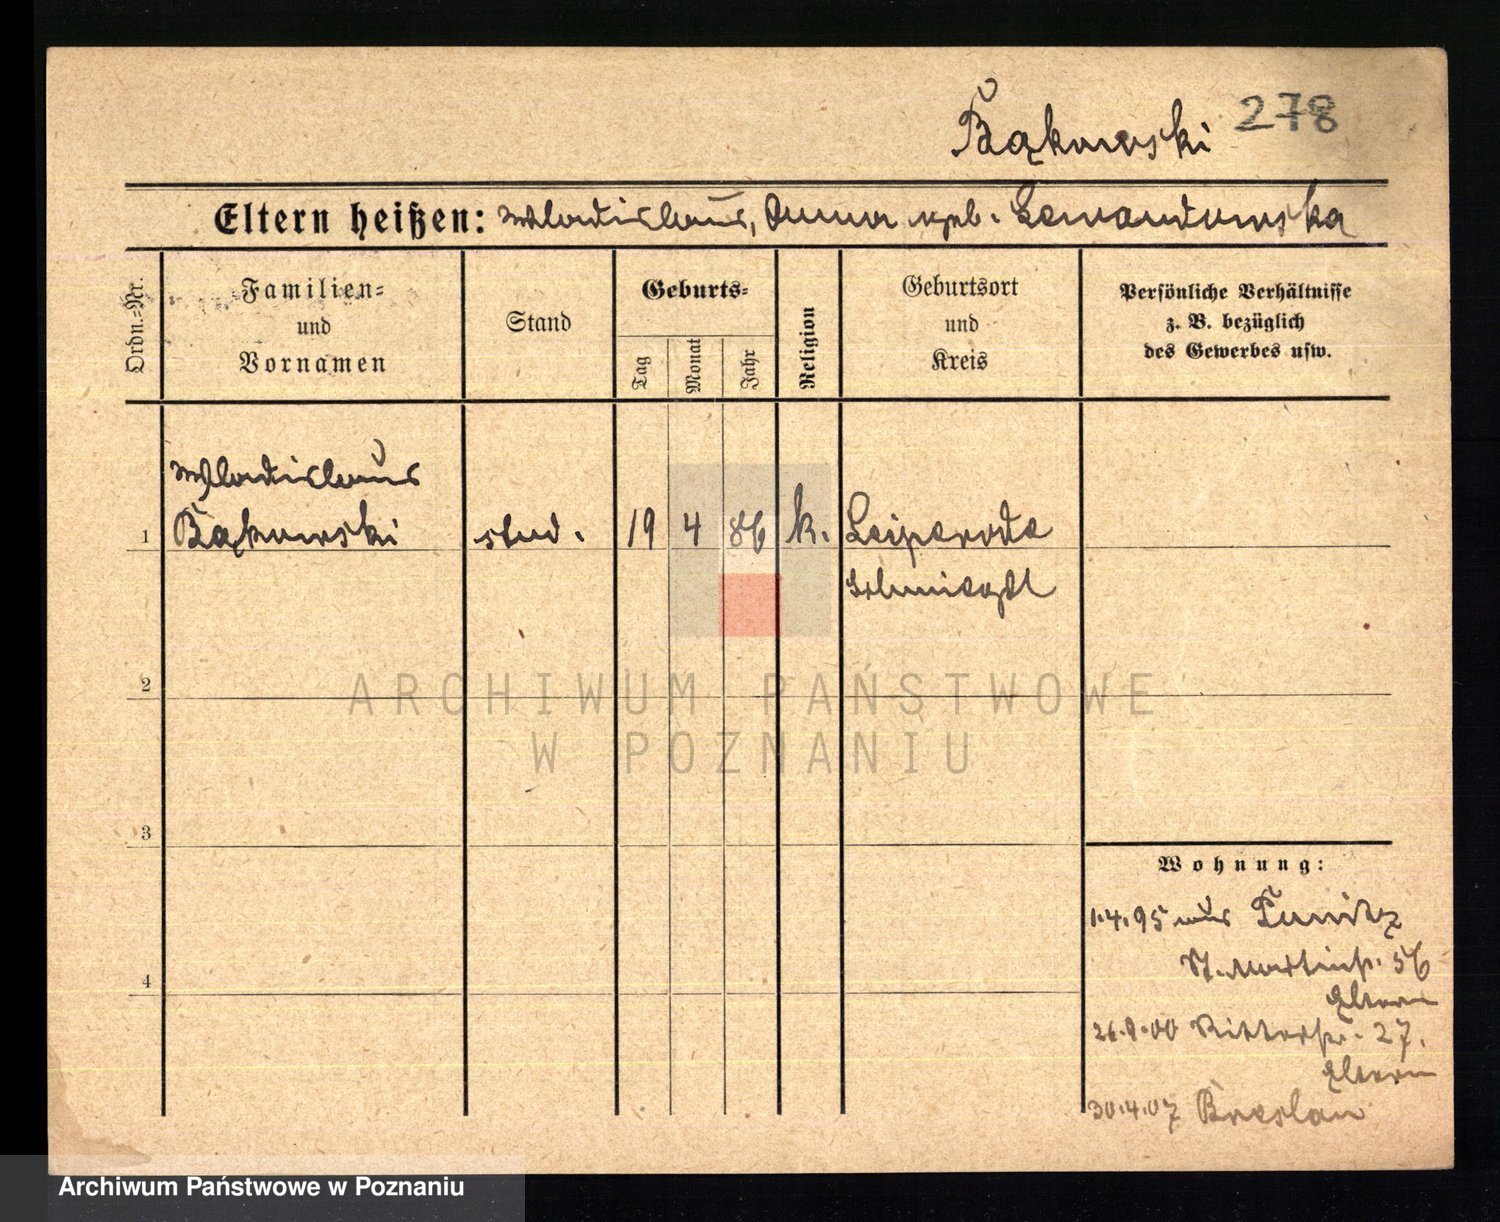 Bąkowski 278
Eltern heißen: Wladislaus, Anna geb. Lewandowska
Ordn.-Nr.
Familien-
und
Vornamen
Stand
Geburts-
Tag
Monat
Jahr
Religion
Geburtsort
und
Kreis
Persönliche Verhältnisse
z. B. bezüglich
des Gewerbes usw.
Wladislaus
1 Bąkowski stud. 19 4 86 k. Leiperode
Schmiegel
2
ARCHIWUM PAŃSTWOWE
W POZNANIU
3
4
Wohnung:
1.4.95 aus Punitz
St. Martinstr. 56
Eltern
26.9.00 Ritterstr. 27.
Eltern
30.4.07 Breslau
Archiwum Państwowe w Poznaniu